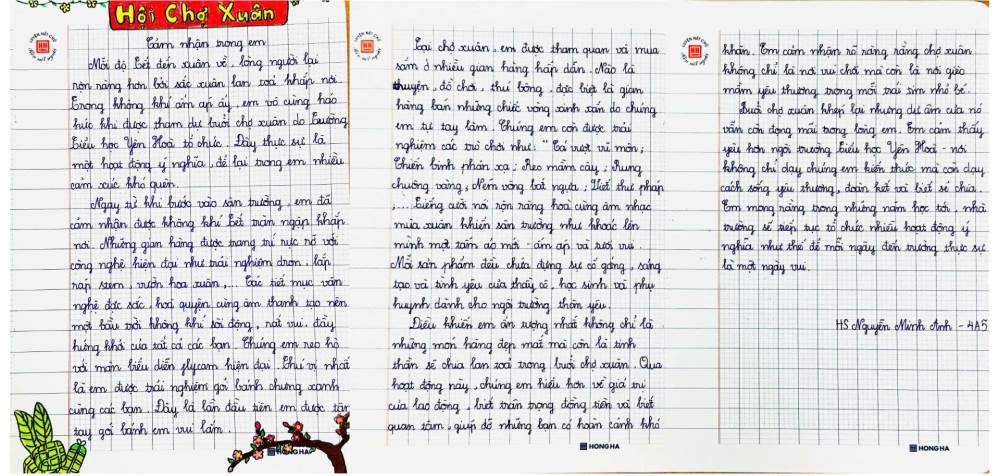 Hội Chợ Xuân
Cảm nhận trong em
Mỗi độ Tết đến xuân về, lòng người lại
rộn ràng hơn bởi sắc xuân lan toả khắp nơi.
Trong không khí ấm áp ấy, em vô cùng háo
hức khi được tham dự buổi chợ xuân do Trường
Tiểu học Yên Hoà tổ chức. Đây thực sự là
một hoạt động ý nghĩa, để lại trong em nhiều
cảm xúc khó quên.
Ngay từ khi bước vào sân trường, em đã
cảm nhận được không khí Tết tràn ngập khắp
nơi. Những gian hàng được trang trí rực rỡ với
công nghệ hiện đại như trải nghiệm dron, lắp
ráp stem, vườn hoa xuân,... Các tiết mục văn
nghệ đặc sắc, hoà quyện cùng âm thanh tạo nên
một bầu trời không khí sôi động, rất vui, đầy
hứng khởi của tất cả các bạn. Chúng em reo hò
với màn biểu diễn flycam hiện đại. Thú vị nhất
là em được trải nghiệm gói bánh chưng xanh
cùng các bạn. Đây là lần đầu tiên em được tận
tay gói bánh em vui lắm.
HONG HA
Tại chợ xuân, em được tham quan và mua
sắm ở nhiều gian hàng hấp dẫn. Nào là
truyện, đồ chơi, thú bông, đặc biệt là gian
hàng bán những chiếc vòng xinh xắn do chúng
em tự tay làm. Chúng em còn được trải
nghiệm các trò chơi như: "Cá vượt vũ môn;
Chiến binh phản xạ; Kheo mâm cây; Rung
chuông vàng; Ném vòng bắt ngựa; Viết thư pháp
;.... Tiếng cười nói rộn ràng hoà cùng âm nhạc
mùa xuân khiến sân trường như khoác lên
mình một tấm áo mới - ấm áp và tươi vui.
Mỗi sản phẩm đều chứa đựng sự cố gắng, sáng
tạo và tình yêu của thầy cô, học sinh và phụ
huynh dành cho ngôi trường thân yêu.
Điều khiến em ấn tượng nhất không chỉ là
những món hàng đẹp mắt mà còn là tinh
thần sẻ chia lan toả trong buổi chợ xuân. Qua
hoạt động này, chúng em hiểu hơn về giá trị
của lao động, biết trân trọng đồng tiền và biết
quan tâm, giúp đỡ những bạn có hoàn cảnh khó
HONG HA
khăn. Em cảm nhận rõ ràng rằng chợ xuân
không chỉ là nơi vui chơi mà còn là nơi gieo
mầm yêu thương trong mỗi trái tim nhỏ bé.
Buổi chợ xuân khép lại nhưng dư âm của nó
vẫn còn đọng mãi trong lòng em. Em cảm thấy
yêu hơn ngôi trường Tiểu học Yên Hoà - nơi
không chỉ dạy chúng em kiến thức mà còn dạy
cách sống yêu thương, đoàn kết và biết sẻ chia.
Em mong rằng trong những năm học tới, nhà
trường sẽ tiếp tục tổ chức nhiều hoạt động ý
nghĩa như thế để mỗi ngày đến trường thực sự
là một ngày vui.
HS Nguyễn Minh Anh - 4A5
HONG HA